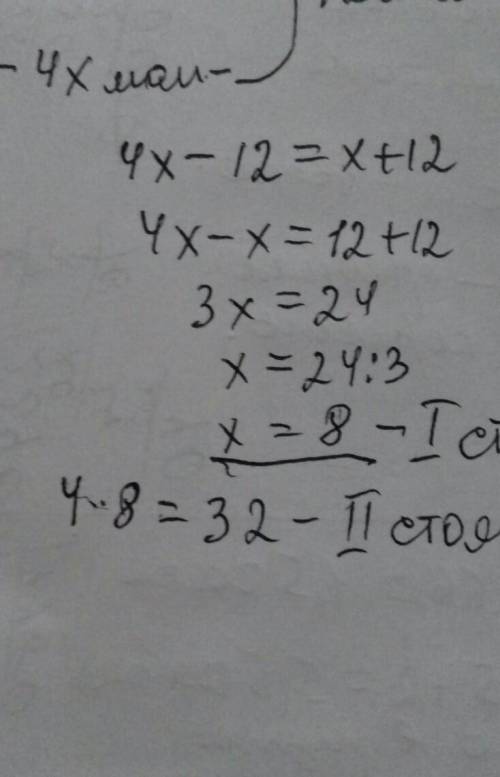 - 4x маш -
4x - 12 = x + 12
4x - x = 12 + 12
3x = 24
x = 24 : 3
x = 8 - I ст
4 · 8 = 32 - II стоя